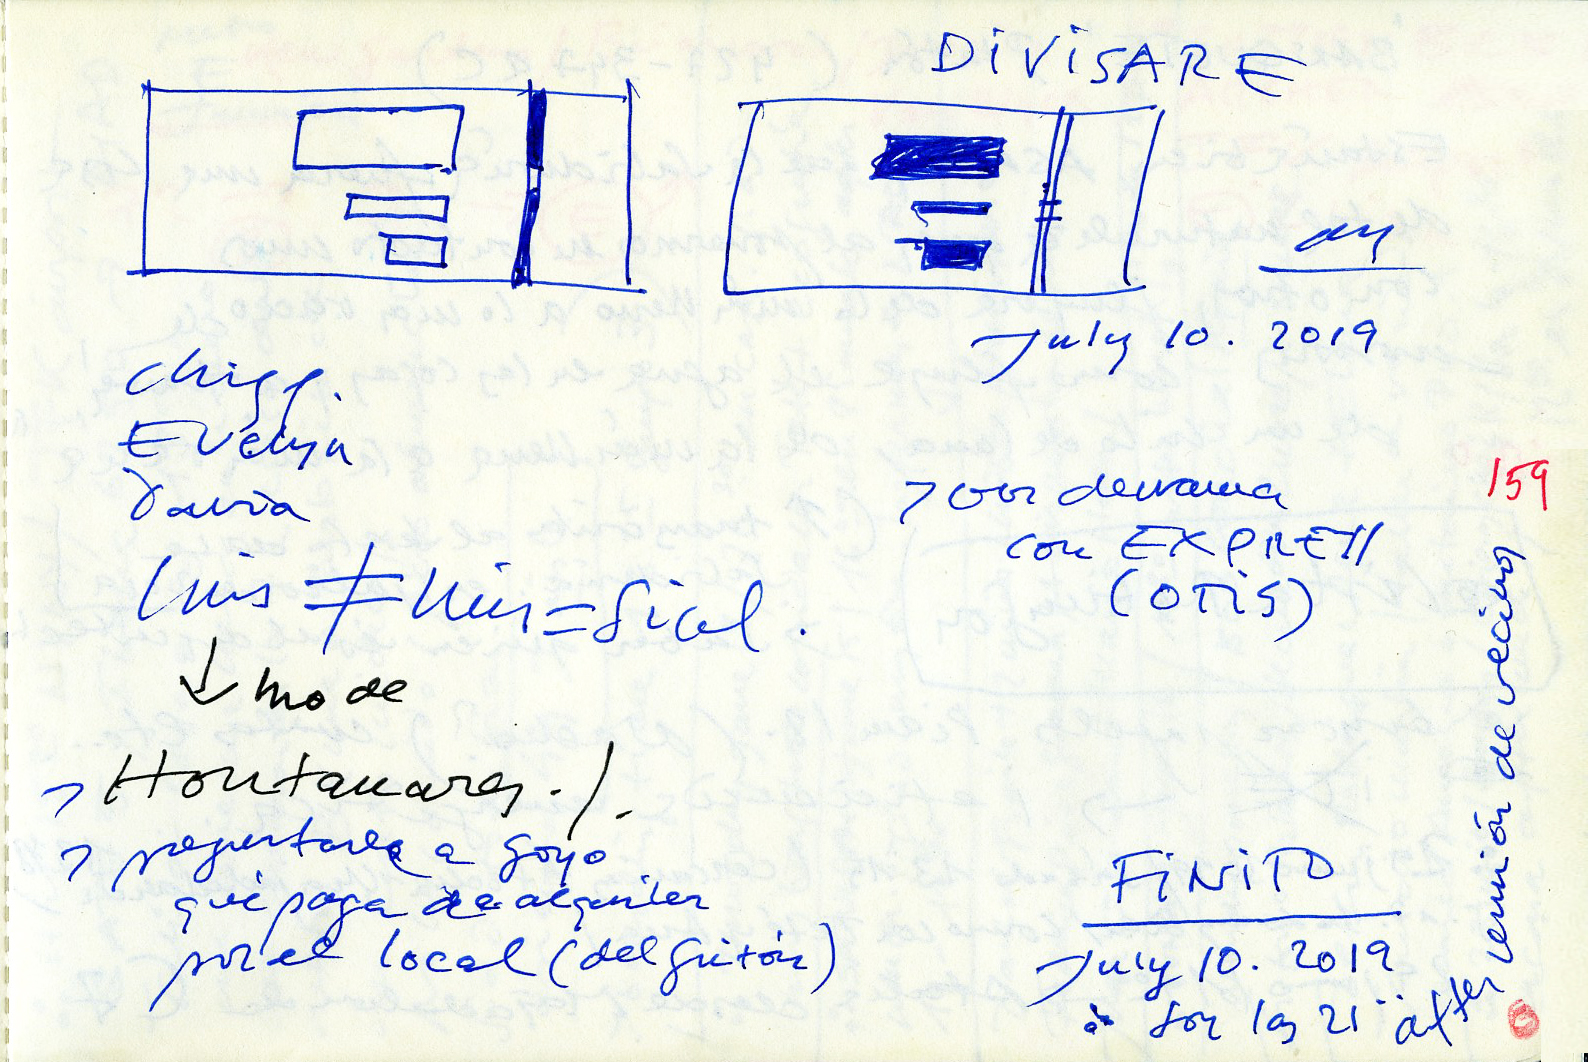 DiViSARE
July 10. 2019
Evelyn
David
Luis ≠ Luis = Sical.
↓ mode
→ Hontanares. /.
→ preguntarle a Goyo
qué paga de alquiler
por el local (del guitón)
159
con EXPRESS
(OTIS)
FiNiTO
July 10. 2019
son las 21 after reunión de vecinos